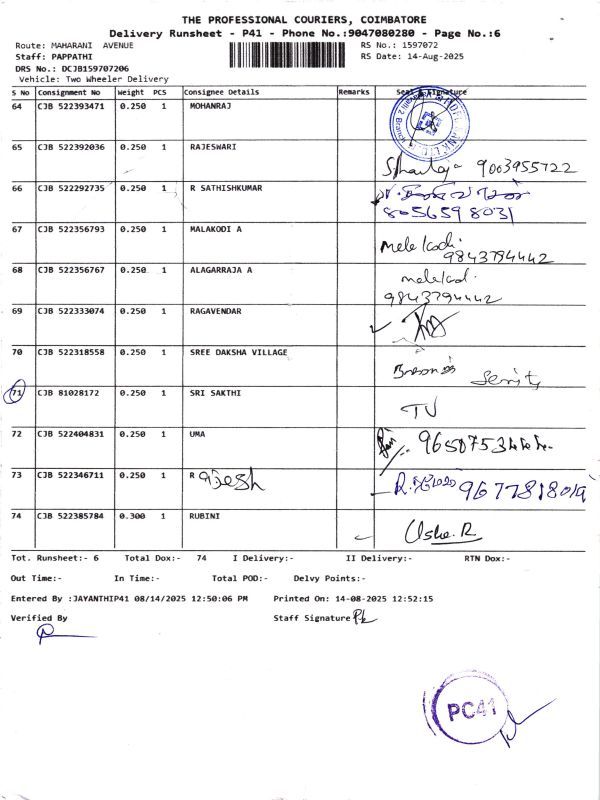 THE PROFESSIONAL COURIERS, COIMBATORE
Delivery Runsheet - P41 - Phone No.:9047080280 - Page No.:6
Route: MAHARANI AVENUE
RS No.: 1597072
Staff: PAPPATHI
RS Date: 14-Aug-2025
DRS No.: DCJB159707206
Vehicle: Two Wheeler Delivery
S No Consignment No Weight PCS Consignee Details Remarks Seal & Signature
64 CJB 522393471 0.250 1 MOHANRAJ
65 CJB 522392036 0.250 1 RAJESWARI
9003955722
66 CJB 522292735 0.250 1 R SATHISHKUMAR
8056598031
67 CJB 522356793 0.250 1 MALAKODI A
9843794442
68 CJB 522356767 0.250 1 ALAGARRAJA A
9843794442
69 CJB 522333074 0.250 1 RAGAVENDAR
70 CJB 522318558 0.250 1 SREE DAKSHA VILLAGE
71 CJB 81028172 0.250 1 SRI SAKTHI
TV
72 CJB 522404831 0.250 1 UMA
73 CJB 522346711 0.250 1 R
9677818019
74 CJB 522385784 0.300 1 RUBINI
Usha.R
Tot. Runsheet:- 6 Total Dox:- 74 I Delivery:- II Delivery:- RTN Dox:-
Out Time:- In Time:- Total POD:- Delvy Points:-
Entered By :JAYANTHIP41 08/14/2025 12:50:06 PM Printed On: 14-08-2025 12:52:15
Verified By Staff Signature
PC41